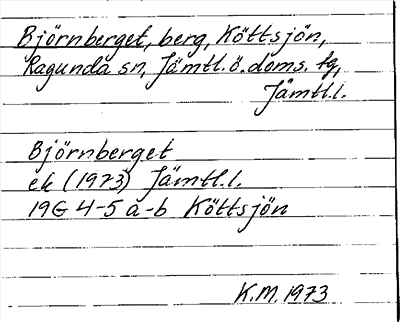 Björnberget, berg, Köttsjön,
Ragunda sn, Jämtl.ö.doms. tg,
Jämtl.l.
Björnberget
ek (1973) Jämtl.l.
19G 4-5 a-b Köttsjön
K.M. 1973